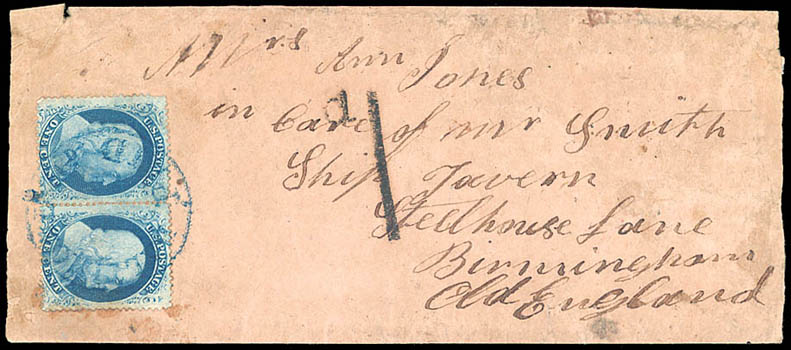 Mrs Ann Jones
in Care of mr Smith
Ship Tavern
Steelhouse Lane
Birmingham
Old England
1d
U.S. POSTAGE
ONE CENT
U.S. POSTAGE
ONE CENT